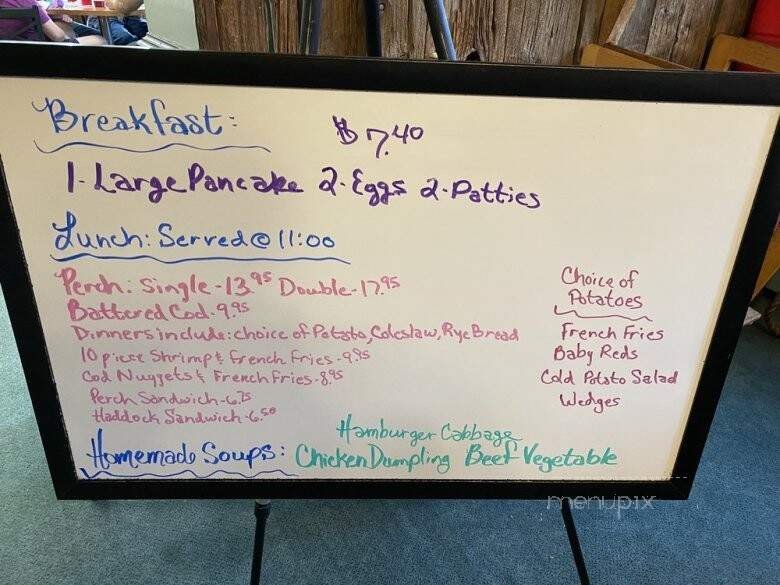 Breakfast: $7.40
1-Large Pancake 2-Eggs 2-Patties
Lunch: Served @ 11:00
Perch: Single-13.95 Double-17.95
Battered Cod-9.95
Dinners include: choice of Potato, Coleslaw, Rye Bread
10 piece Shrimp & French Fries-9.95
Cod Nuggets & French Fries-8.95
Perch Sandwich-6.75
Haddock Sandwich-6.50
Choice of
Potatoes
French Fries
Baby Reds
Cold Potato Salad
Wedges
Hamburger Cabbage
Homemade Soups: Chicken Dumpling Beef Vegetable
menupix